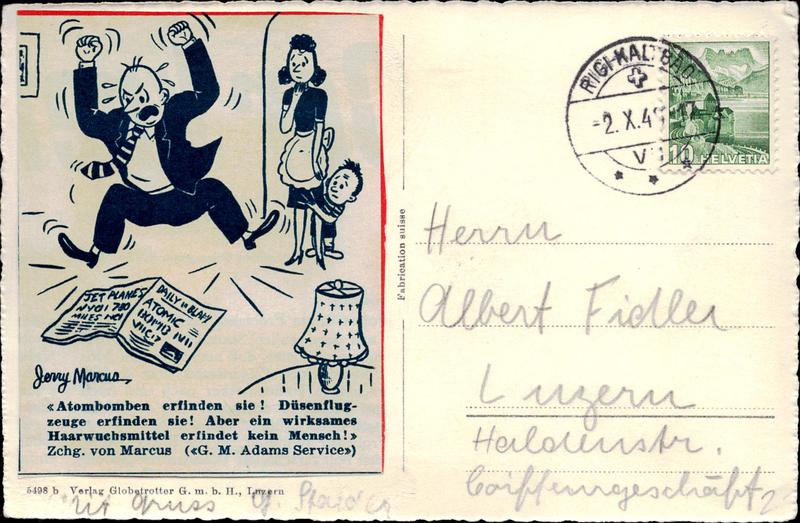 JET PLANES
DAILY BLAH
ATOMIC
Jerry Marcus
«Atombomben erfinden sie! Düsenflug-
zeuge erfinden sie! Aber ein wirksames
Haarwuchsmittel erfindet kein Mensch!»
Zchg. von Marcus («G. M. Adams Service»)
5498 b Verlag Globetrotter G. m. b. H., Luzern
Gruss
Fabrication suisse
RIGI-KALTBAD
-2. X. 4
10 HELVETIA
Herrn
Albert Fidler
Luzern
Haldenstr.
Coiffeurgeschäft